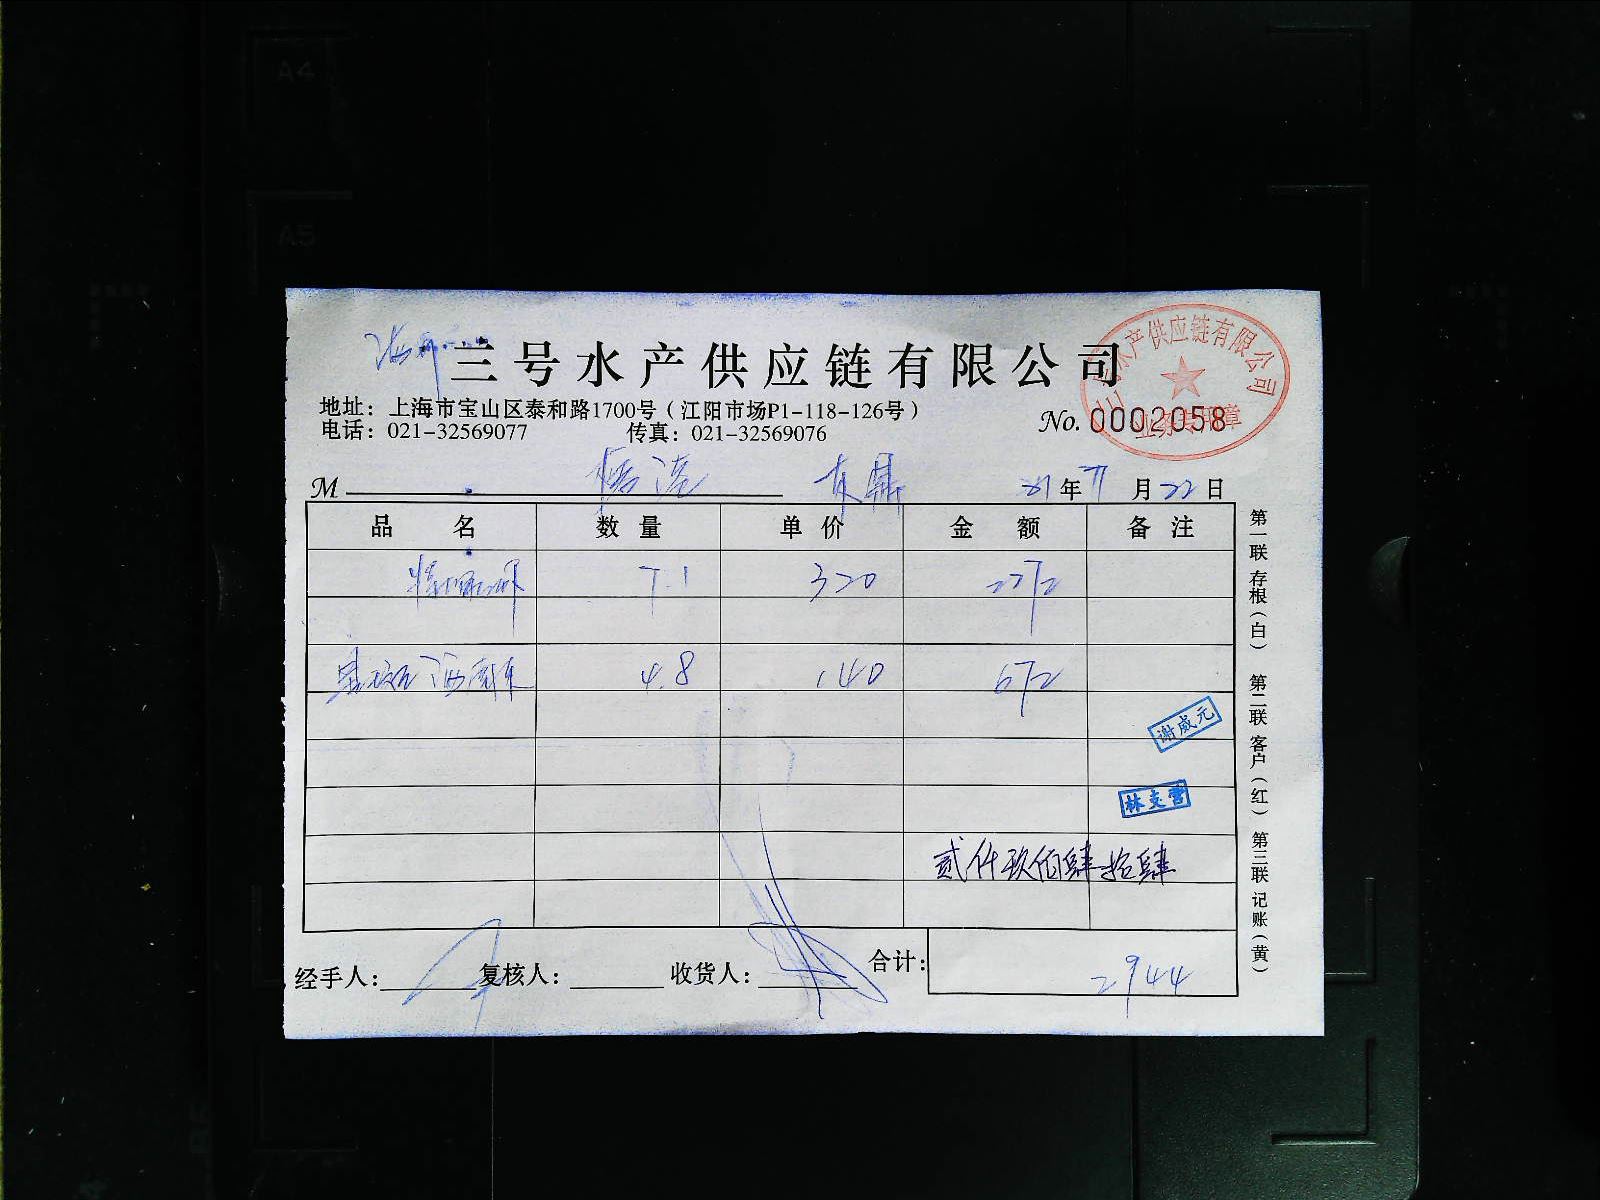 A4
A5
三号水产供应链有限公司
三号水产供应链有限公司
业务专用章
地址：上海市宝山区泰和路1700号（江阳市场P1-118-126号）
No. 0002058
电话：021-32569077 传真：021-32569076
M 21年11月22日
品名 数量 单价 金额 备注
7.1 320 2272
4.8 140 672
谢威元
林支营
贰仟玖佰肆拾肆
经手人： 复核人： 收货人： 合计： 2944
第一联 存根（白）
第二联 客户（红）
第三联 记账（黄）